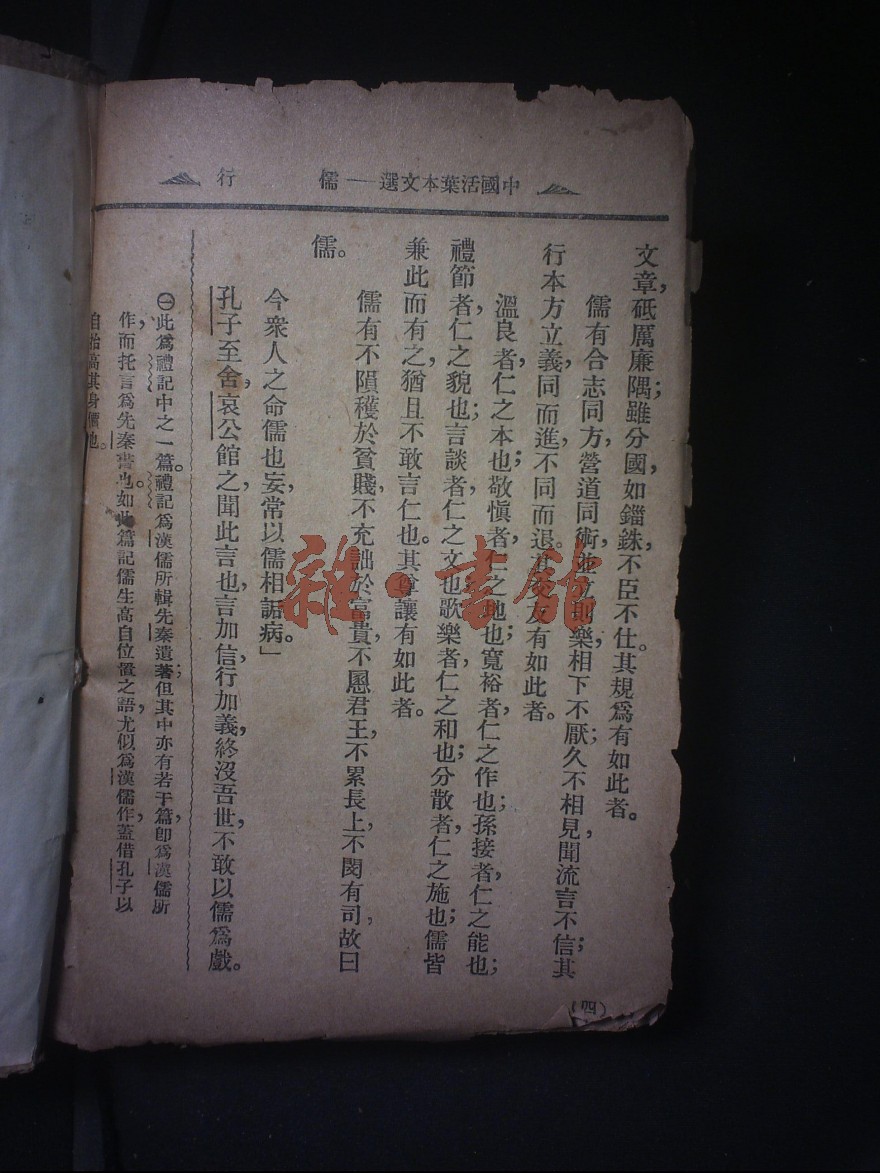 中國活葉本文選——儒行
文章，砥厲廉隅；雖分國，如錙銖，不臣不仕。其規爲有如此者。
儒有合志同方，營道同術；並立則樂，相下不厭；久不相見，聞流言不信；其
行本方立義，同而進，不同而退。其交友有如此者。
溫良者，仁之本也；敬愼者，仁之地也；寬裕者，仁之作也；孫接者，仁之能也；
禮節者，仁之貌也；言談者，仁之文也；歌樂者，仁之和也；分散者，仁之施也；儒皆
兼此而有之，猶且不敢言仁也。其尊讓有如此者。
儒有不隕穫於貧賤，不充詘於富貴，不慁君王，不累長上，不閔有司，故曰
儒。
今衆人之命儒也妄，常以儒相詬病。」
孔子至舍，哀公館之，聞此言也，言加信，行加義，終沒吾世，不敢以儒爲戲。
㊀此爲禮記中之一篇。禮記爲漢儒所輯先秦遺著；但其中亦有若干篇，卽爲漢儒所
作，而托言爲先秦書也。如此篇記儒生高自位置之語，尤似爲漢儒作，蓋借孔子以
自抬高其身價也。
（四）
雜·書館